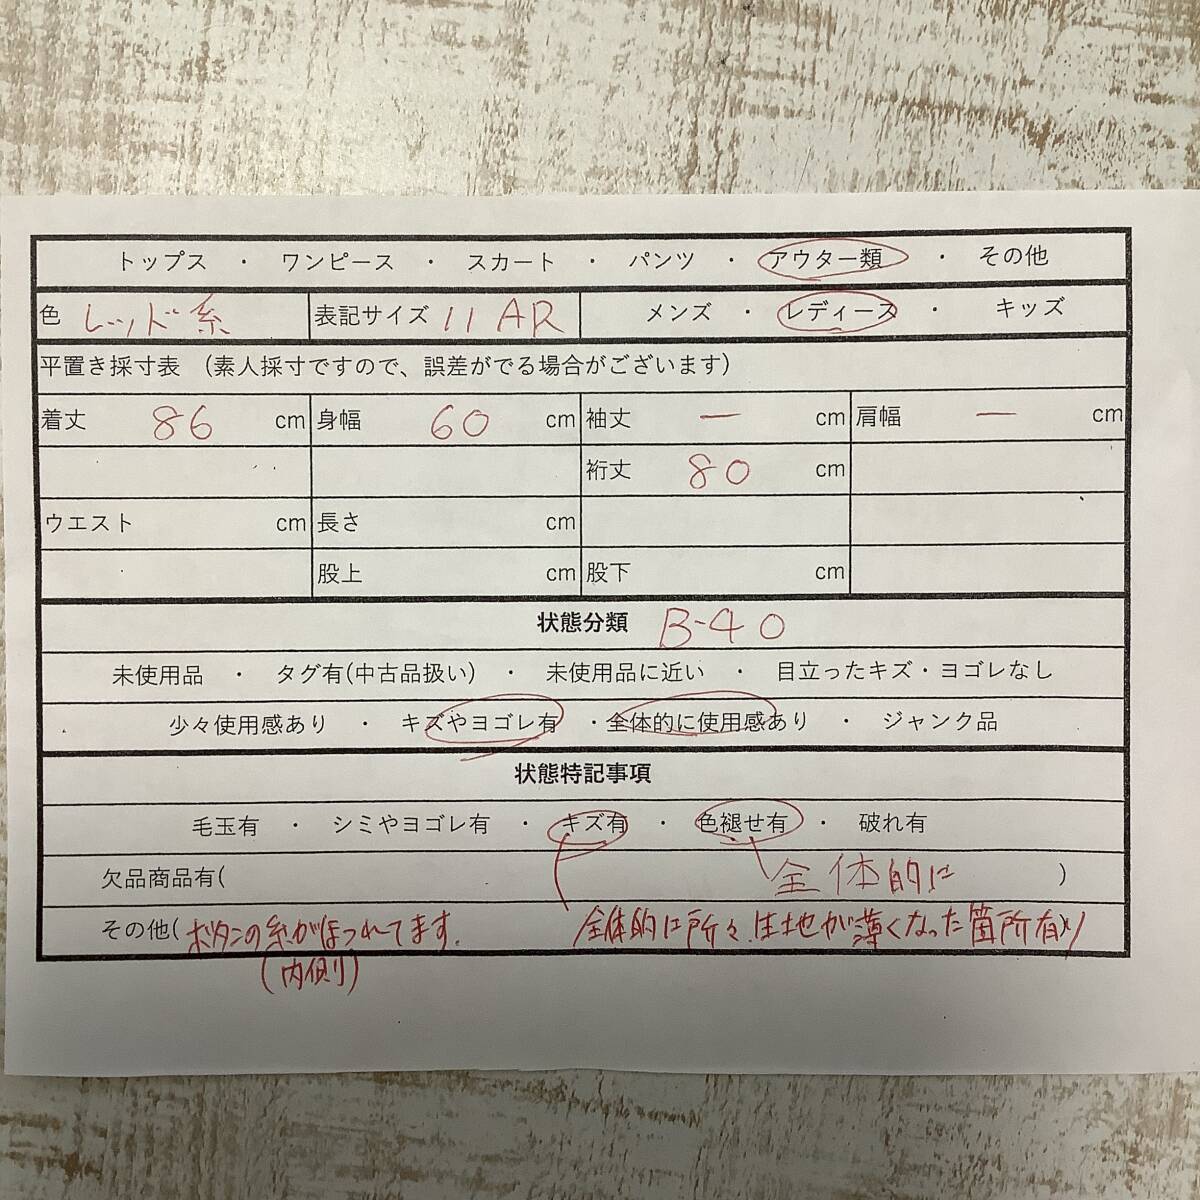 トップス ・ ワンピース ・ スカート ・ パンツ ・ アウター類 ・ その他
色 レッド系 表記サイズ 11AR メンズ ・ レディース ・ キッズ
平置き採寸表 (素人採寸ですので、誤差がでる場合がございます)
着丈 86 cm 身幅 60 cm 袖丈 ー cm 肩幅 ー cm
裄丈 80 cm
ウエスト cm 長さ cm
股上 cm 股下 cm
状態分類 B-40
未使用品 ・ タグ有(中古品扱い) ・ 未使用品に近い ・ 目立ったキズ・ヨゴレなし
少々使用感あり ・ キズやヨゴレ有 ・ 全体的に使用感あり ・ ジャンク品
状態特記事項
毛玉有 ・ シミやヨゴレ有 ・ キズ有 ・ 色褪せ有 ・ 破れ有
欠品商品有( 全体的に )
その他( ボタンの糸がほつれてます. 全体的に所々、生地が薄くなった箇所有り )
(内側)